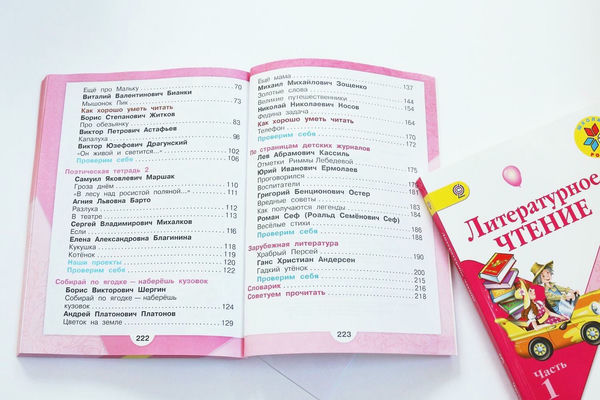 Ещё про Мальку 70
Виталий Валентинович Бианки
Мышонок Пик 73
Как хорошо уметь читать
Борис Степанович Житков
Про обезьянку 83
Виктор Петрович Астафьев
Капалуха 98
Виктор Юзефович Драгунский
«Он живой и светится...» 102
Проверим себя 106
Поэтическая тетрадь 2
Самуил Яковлевич Маршак
Гроза днём 110
«В лесу над росистой поляной...» 111
Агния Львовна Барто
Разлука 112
В театре 113
Сергей Владимирович Михалков
Если 116
Елена Александровна Благинина
Кукушка 118
Котёнок 119
Наши проекты 120
Проверим себя 122
Собирай по ягодке — наберёшь кузовок
Борис Викторович Шергин
Собирай по ягодке — наберёшь
кузовок 124
Андрей Платонович Платонов
Цветок на земле 129
222
Ещё мама 137
Михаил Михайлович Зощенко
Золотые слова 144
Великие путешественники 154
Николай Николаевич Носов
Федина задача 164
Как хорошо уметь читать
Телефон 170
Проверим себя 172
По страницам детских журналов
Лев Абрамович Кассиль
Отметки Риммы Лебедевой
Юрий Иванович Ермолаев
Проговорился
Воспитатели
Григорий Бенционович Остер
Вредные советы
Как получаются легенды
Роман Сеф (Роальд Семёнович Сеф)
Весёлые стихи
Проверим себя
Зарубежная литература
Храбрый Персей 190
Ганс Христиан Андерсен
Гадкий утёнок 200
Проверим себя 215
Словарик 216
Советуем прочитать 218
223
Литературное
ЧТЕНИЕ
Часть
1